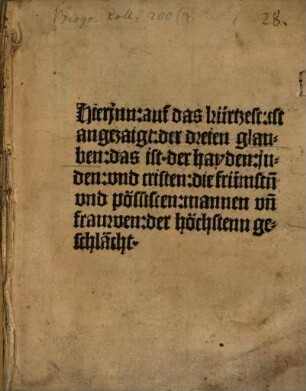 Biogr. Coll. 200 (2 28.
Hierjnn: auf das kürtzest: ist
angezaigt: der dreien glau-
ben: das ist: der hayden: ju-
den: vnd cristen: die frümstñ
vnd pössisten: mannen vñ
frauwen: der höchstenn ge-
schlächt.